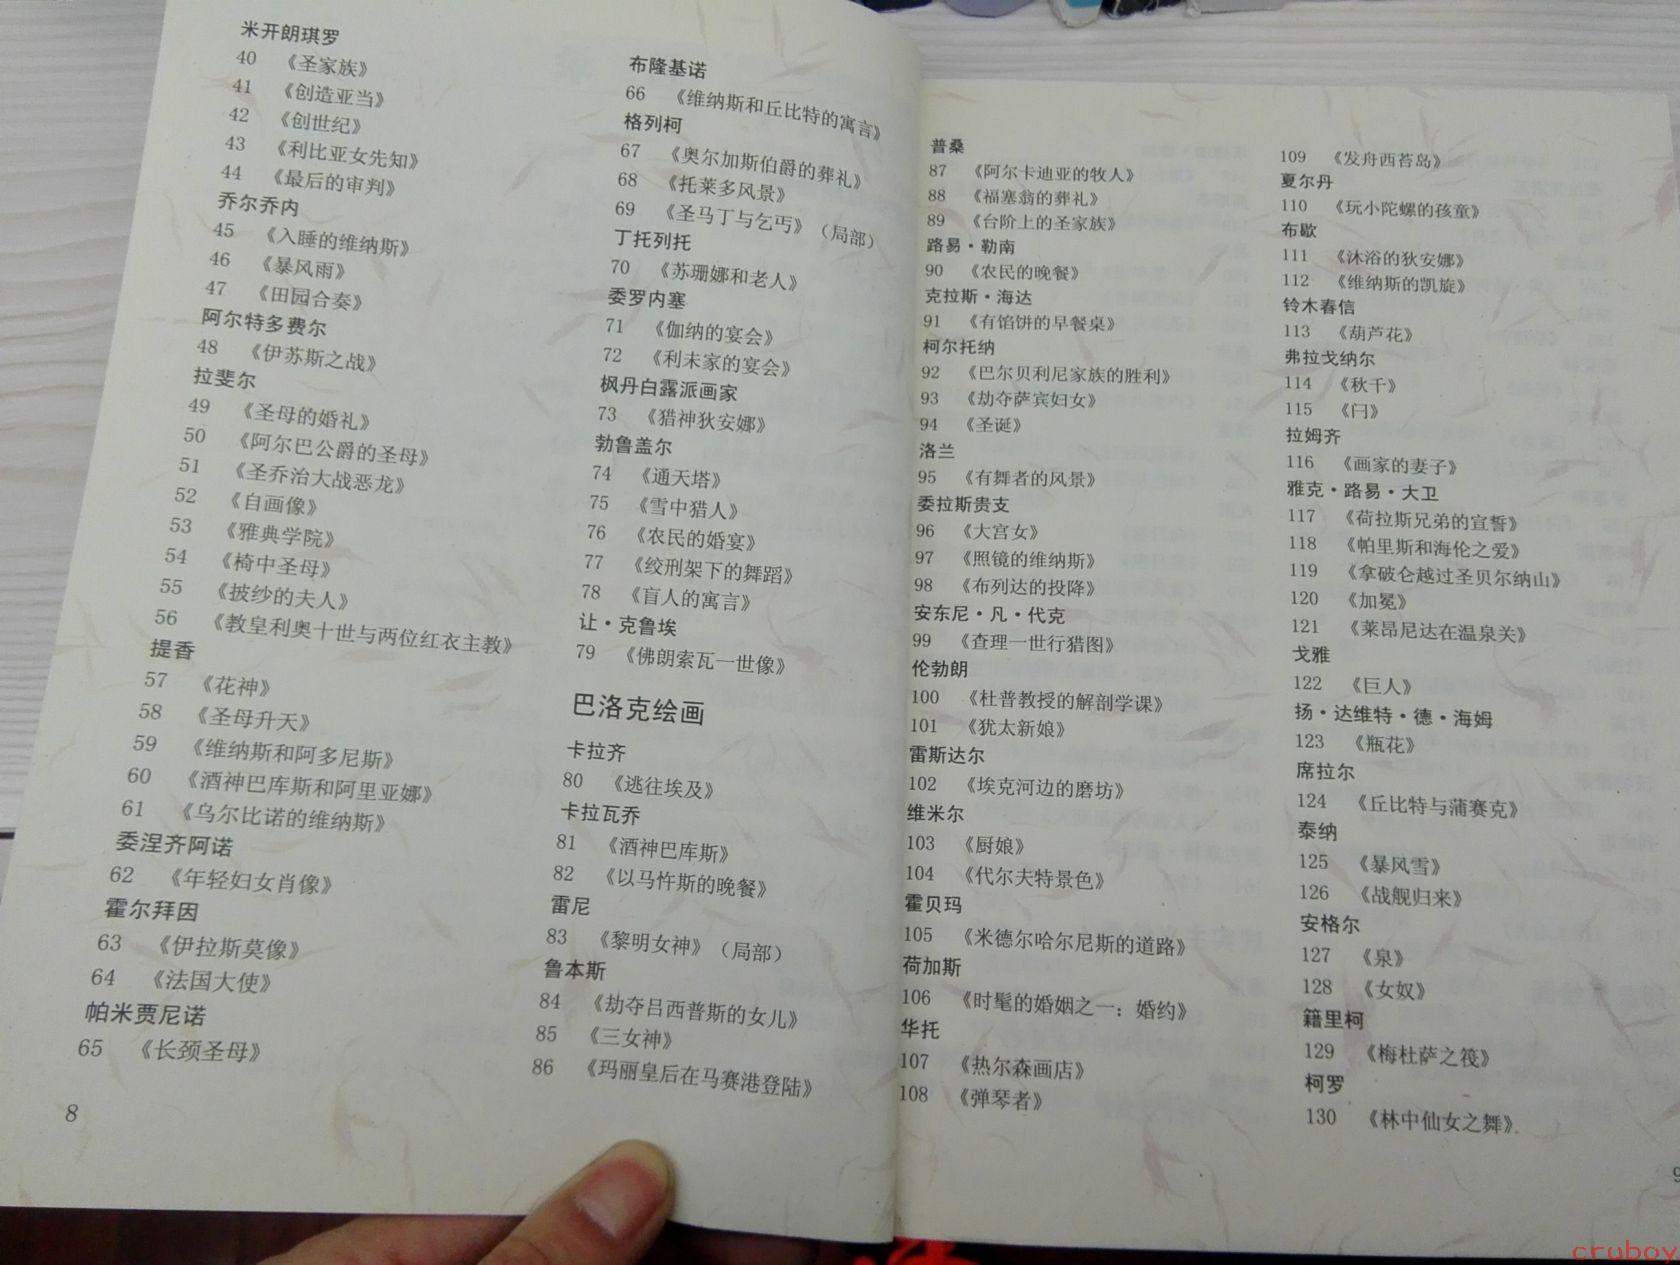 米开朗琪罗
40 《圣家族》
41 《创造亚当》
42 《创世纪》
43 《利比亚女先知》
44 《最后的审判》
乔尔乔内
45 《入睡的维纳斯》
46 《暴风雨》
47 《田园合奏》
阿尔特多费尔
48 《伊苏斯之战》
拉斐尔
49 《圣母的婚礼》
50 《阿尔巴公爵的圣母》
51 《圣乔治大战恶龙》
52 《自画像》
53 《雅典学院》
54 《椅中圣母》
55 《披纱的夫人》
56 《教皇利奥十世与两位红衣主教》
提香
57 《花神》
58 《圣母升天》
59 《维纳斯和阿多尼斯》
60 《酒神巴库斯和阿里亚娜》
61 《乌尔比诺的维纳斯》
委涅齐阿诺
62 《年轻妇女肖像》
霍尔拜因
63 《伊拉斯莫像》
64 《法国大使》
帕米贾尼诺
65 《长颈圣母》
8
布隆基诺
66 《维纳斯和丘比特的寓言》
格列柯
67 《奥尔加斯伯爵的葬礼》
68 《托莱多风景》
69 《圣马丁与乞丐》（局部）
丁托列托
70 《苏珊娜和老人》
委罗内塞
71 《伽纳的宴会》
72 《利未家的宴会》
枫丹白露派画家
73 《猎神狄安娜》
勃鲁盖尔
74 《通天塔》
75 《雪中猎人》
76 《农民的婚宴》
77 《绞刑架下的舞蹈》
78 《盲人的寓言》
让·克鲁埃
79 《佛朗索瓦一世像》
巴洛克绘画
卡拉齐
80 《逃往埃及》
卡拉瓦乔
81 《酒神巴库斯》
82 《以马忤斯的晚餐》
雷尼
83 《黎明女神》（局部）
鲁本斯
84 《劫夺吕西普斯的女儿》
85 《三女神》
86 《玛丽皇后在马赛港登陆》
普桑
87 《阿尔卡迪亚的牧人》
88 《福塞翁的葬礼》
89 《台阶上的圣家族》
路易·勒南
90 《农民的晚餐》
克拉斯·海达
91 《有馅饼的早餐桌》
柯尔托纳
92 《巴尔贝利尼家族的胜利》
93 《劫夺萨宾妇女》
94 《圣诞》
洛兰
95 《有舞者的风景》
委拉斯贵支
96 《大宫女》
97 《照镜的维纳斯》
98 《布列达的投降》
安东尼·凡·代克
99 《查理一世行猎图》
伦勃朗
100 《杜普教授的解剖学课》
101 《犹太新娘》
雷斯达尔
102 《埃克河边的磨坊》
维米尔
103 《厨娘》
104 《代尔夫特景色》
霍贝玛
105 《米德尔哈尔尼斯的道路》
荷加斯
106 《时髦的婚姻之一：婚约》
华托
107 《热尔森画店》
108 《弹琴者》
109 《发舟西苔岛》
夏尔丹
110 《玩小陀螺的孩童》
布歇
111 《沐浴的狄安娜》
112 《维纳斯的凯旋》
铃木春信
113 《葫芦花》
弗拉戈纳尔
114 《秋千》
115 《闩》
拉姆齐
116 《画家的妻子》
雅克·路易·大卫
117 《荷拉斯兄弟的宣誓》
118 《帕里斯和海伦之爱》
119 《拿破仑越过圣贝尔纳山》
120 《加冕》
121 《莱昂尼达在温泉关》
戈雅
122 《巨人》
扬·达维特·德·海姆
123 《瓶花》
席拉尔
124 《丘比特与蒲赛克》
泰纳
125 《暴风雪》
126 《战舰归来》
安格尔
127 《泉》
128 《女奴》
籍里柯
129 《梅杜萨之筏》
柯罗
130 《林中仙女之舞》
9
cruboy